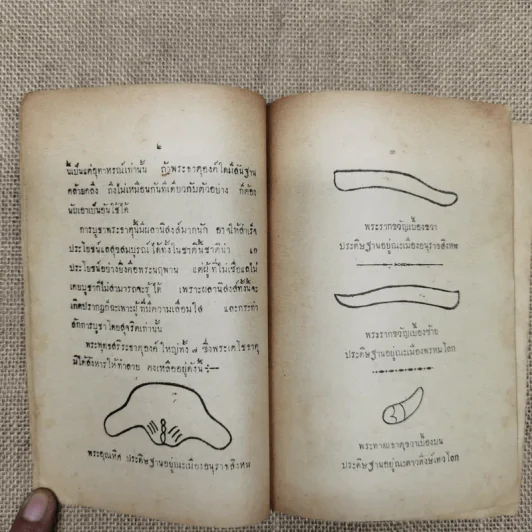 ๒
นี้เป็นแต่อุทาหรณ์เท่านั้น ถ้าพระธาตุองค์ใดมีสัณฐาน
คล้ายคลึง ถึงไม่เหมือนกันทีเดียวกับตัวอย่าง ก็ต้อง
นับเอาเป็นอันใช้ได้
การบูชาพระธาตุนี้มีผลานิสงส์มากนัก อาจให้สำเร็จ
ประโยชน์แลสุขสมบูรณ์ได้ทั้งในชาตินี้ชาติน่า แล
ประโยชน์อย่างยิ่งคือพระนฤพาน แต่ผู้ที่ไม่เชื่อแลไม่
เคยบูชาก็ไม่สามารถจะรู้ได้ เพราะผลานิสงส์ทั้งนี้จะ
เกิดปรากฏก็ฉะเพาะผู้ที่มีความเลื่อมใส และกระทำ
สักการบูชาโดยสุจริตเท่านั้น
พระพุทธสรีระธาตุองค์ใหญ่ทั้ง ๘ ซึ่งพระเตโชธาตุ
มิได้สังหารให้ทำลาย คงเหลืออยู่ดังนี้:—
พระอุณหิศ ประดิษฐานอยู่ณะเมืองอนุราธสิงหฬ
๓
พระรากขวัญเบื้องขวา
ประดิษฐานอยู่ณะเมืองอนุราธสิงหฬ
พระรากขวัญเบื้องซ้าย
ประดิษฐานอยู่ณะเมืองพรหมโลก
พระทาฒธาตุขวาเบื้องบน
ประดิษฐานอยู่ณะดาวดึงษ์เทวโลก